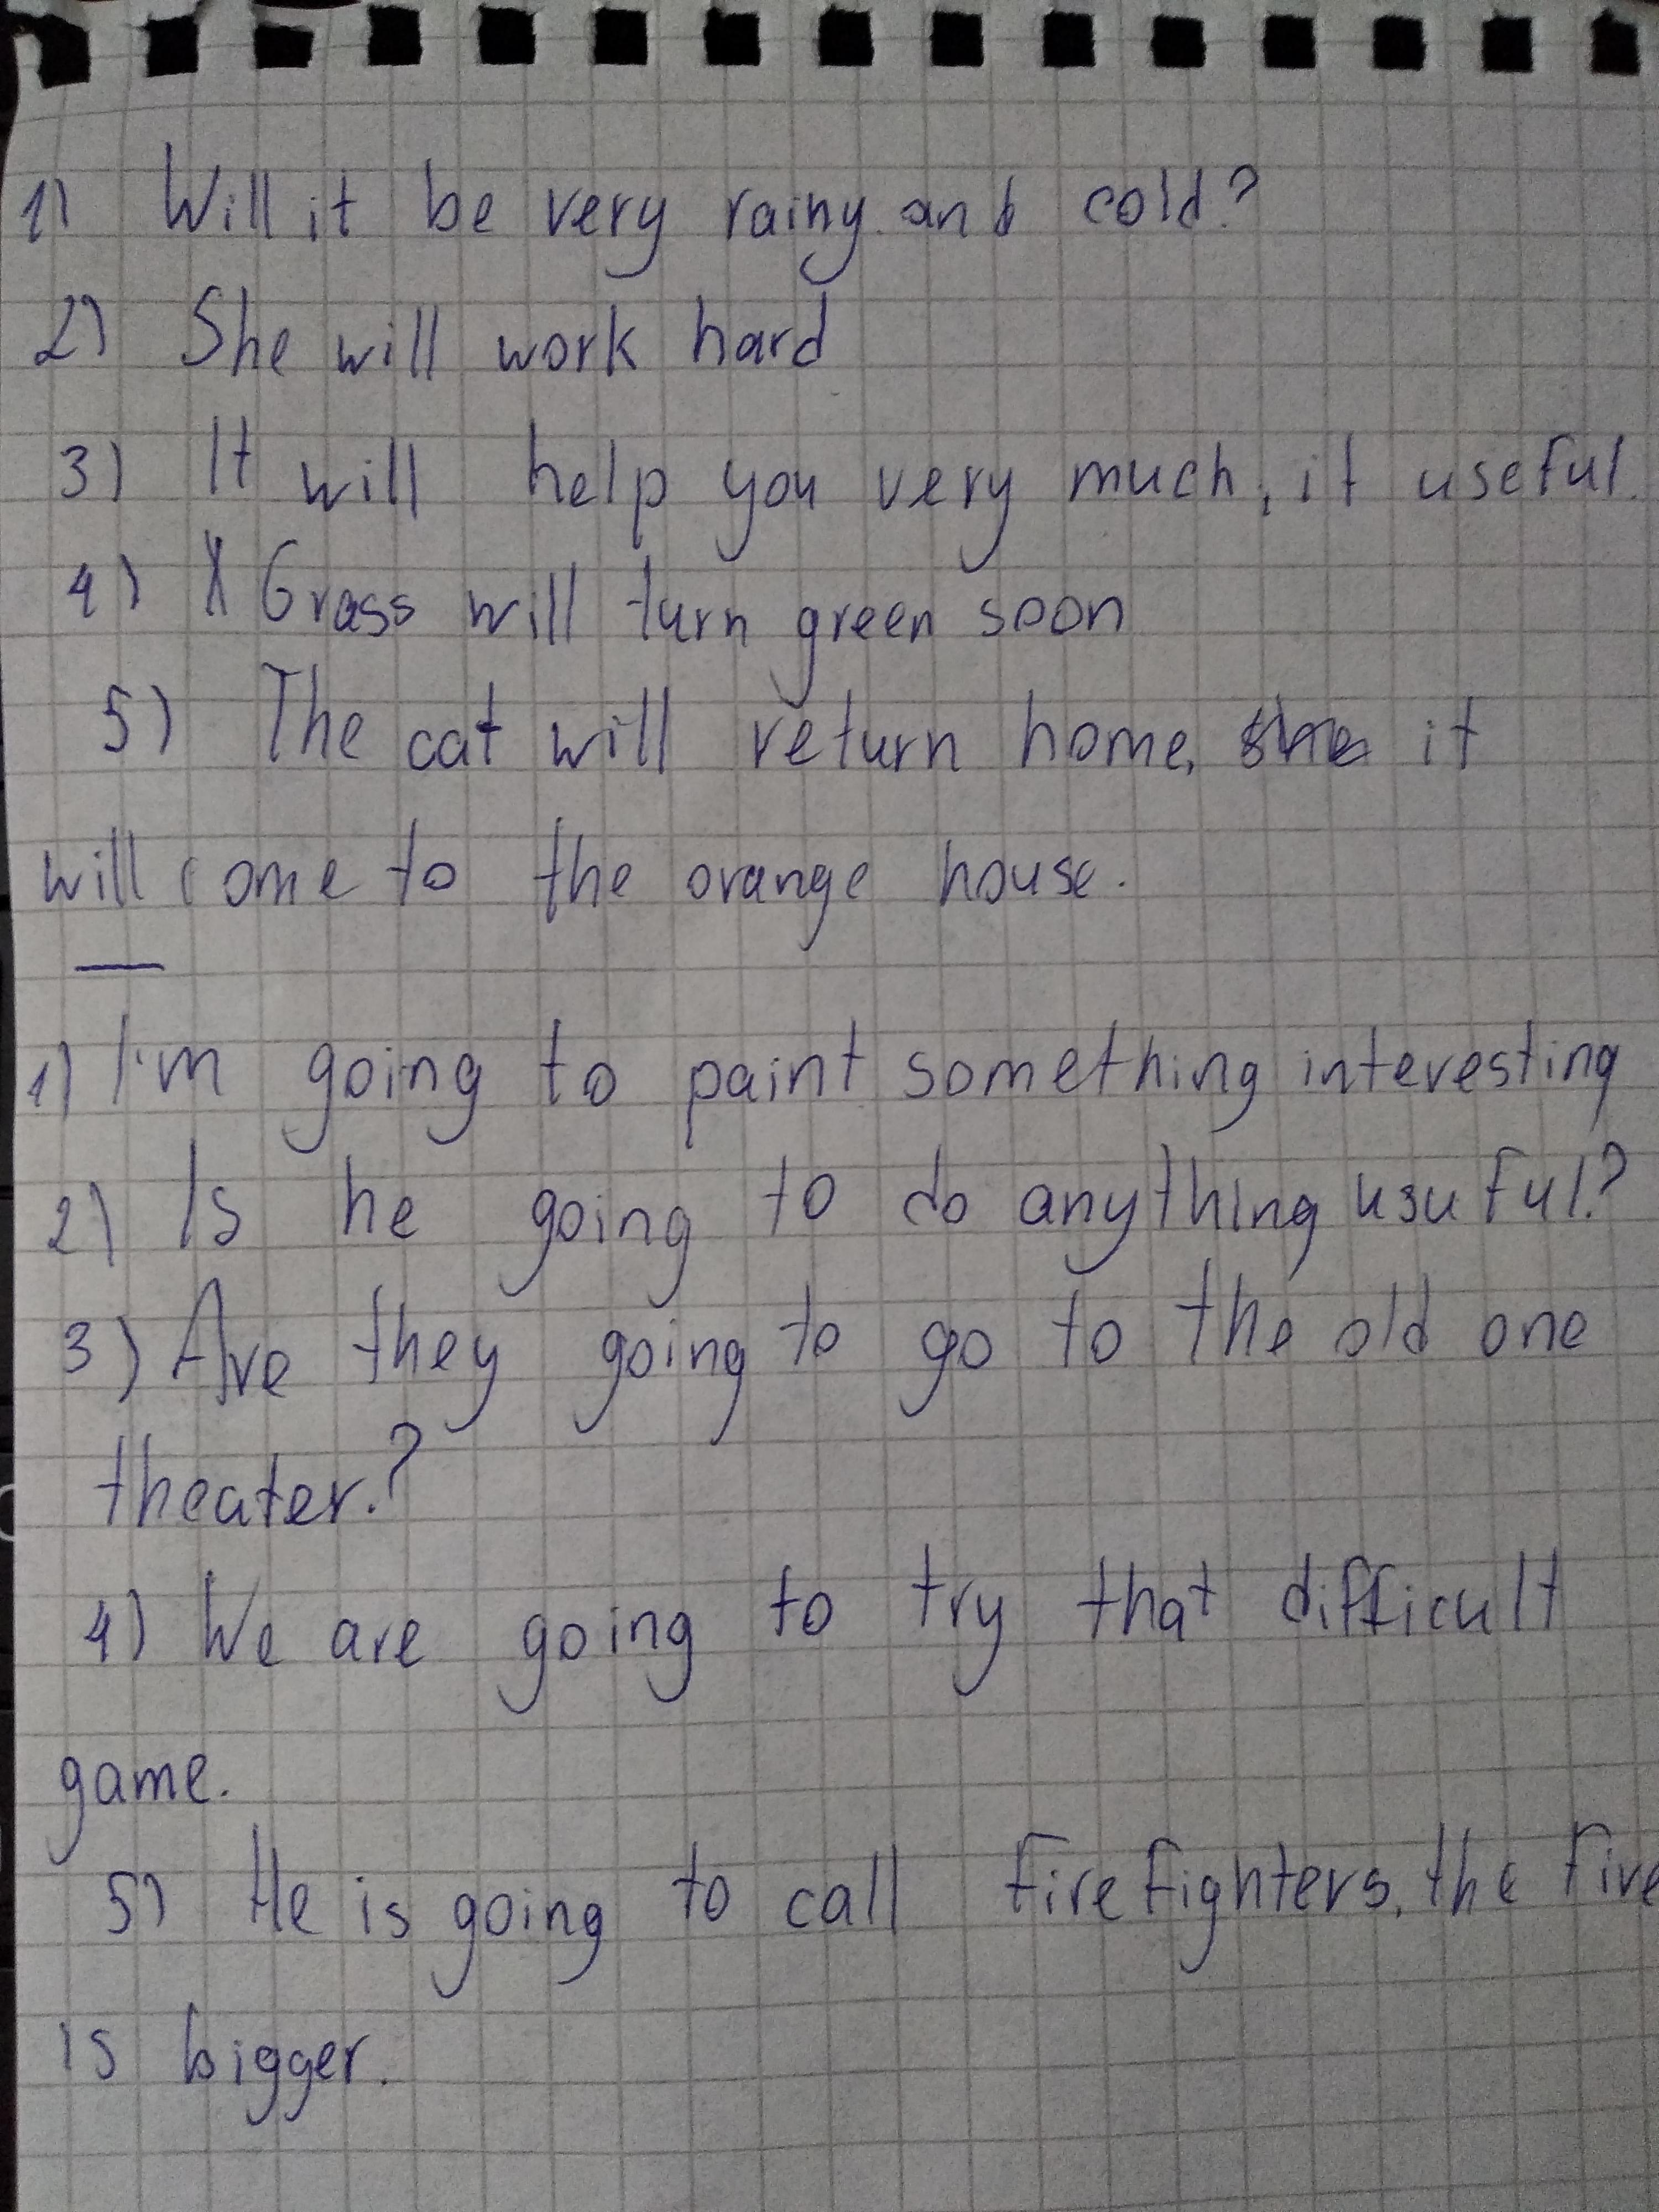 1) Will it be very rainy and cold?
2) She will work hard
3) It will help you very much, it useful.
4) Grass will turn green soon
5) The cat will return home, she it
will come to the orange house.
1) I'm going to paint something interesting
2) Is he going to do anything usuful?
3) Are they going to go to the old one
theater.?
4) We are going to try that difficult
game.
5) He is going to call firefighters, the fire
is bigger.